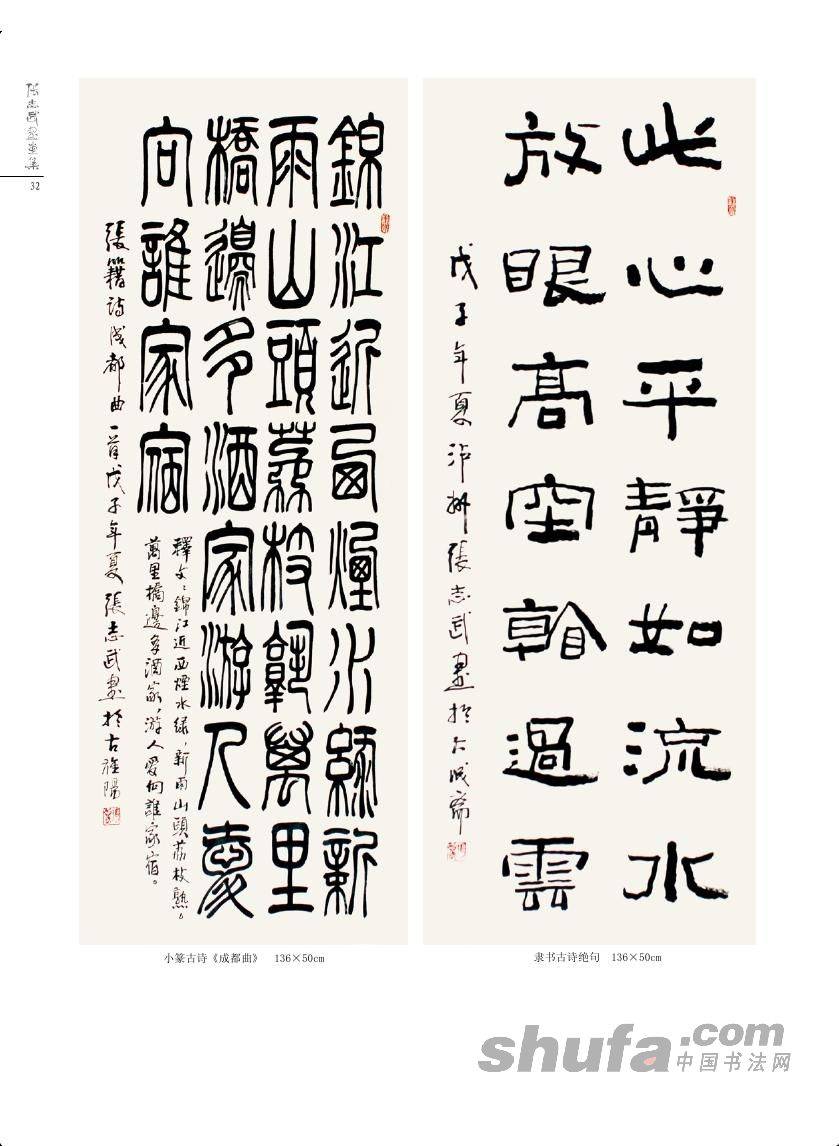 32
此心平靜如流水
放眼高空看過雲
戊子年夏泸州張志武書於大成齋
錦江近西煙水綠新
雨山頭荔枝熟萬里
橋邊多酒家游人愛
向誰家宿
釋文：錦江近西煙水綠，新雨山頭荔枝熟。
萬里橋邊多酒家，游人愛向誰家宿。
張籍詩成都曲一首戊子年夏張志武書於古陽
小篆古诗《成都曲》 136×50cm
隶书古诗绝句 136×50cm
shufa.com
中国书法网